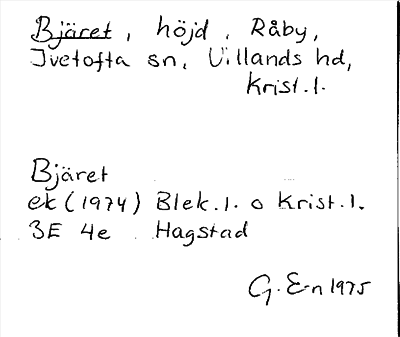 Bjäret, höjd, Råby,
Ivetofta sn, Villands hd,
Krist.l.
Bjäret
ek (1974) Blek.l. o Krist.l.
3E 4e Hagstad
G. E-n 1975